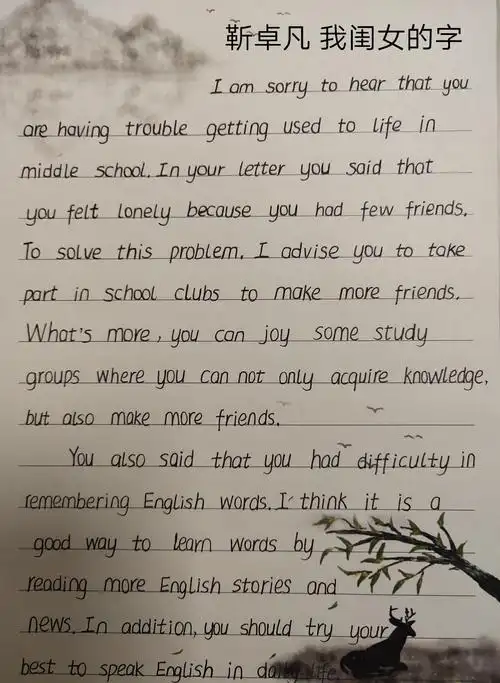 靳卓凡 我闺女的字
I am sorry to hear that you
are having trouble getting used to life in
middle school. In your letter you said that
you felt lonely because you had few friends.
To solve this problem. I advise you to take
part in school clubs to make more friends.
What's more, you can joy some study
groups where you can not only acquire knowledge,
but also make more friends.
You also said that you had difficulty in
remembering English words. I think it is a
good way to learn words by
reading more English stories and
news. In addition, you should try your
best to speak English in daily life.